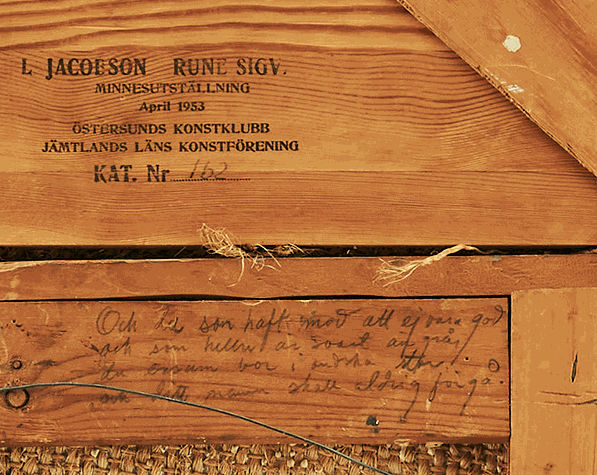 L JACOBSON RUNE SIGV.
MINNESUTSTÄLLNING
April 1953
ÖSTERSUNDS KONSTKLUBB
JÄMTLANDS LÄNS KONSTFÖRENING
KAT. Nr 162
Och du som haft mod att ej vara god
och som hellre är svart än grå,
du ensam bor i
och ditt namn skall aldrig förgå.